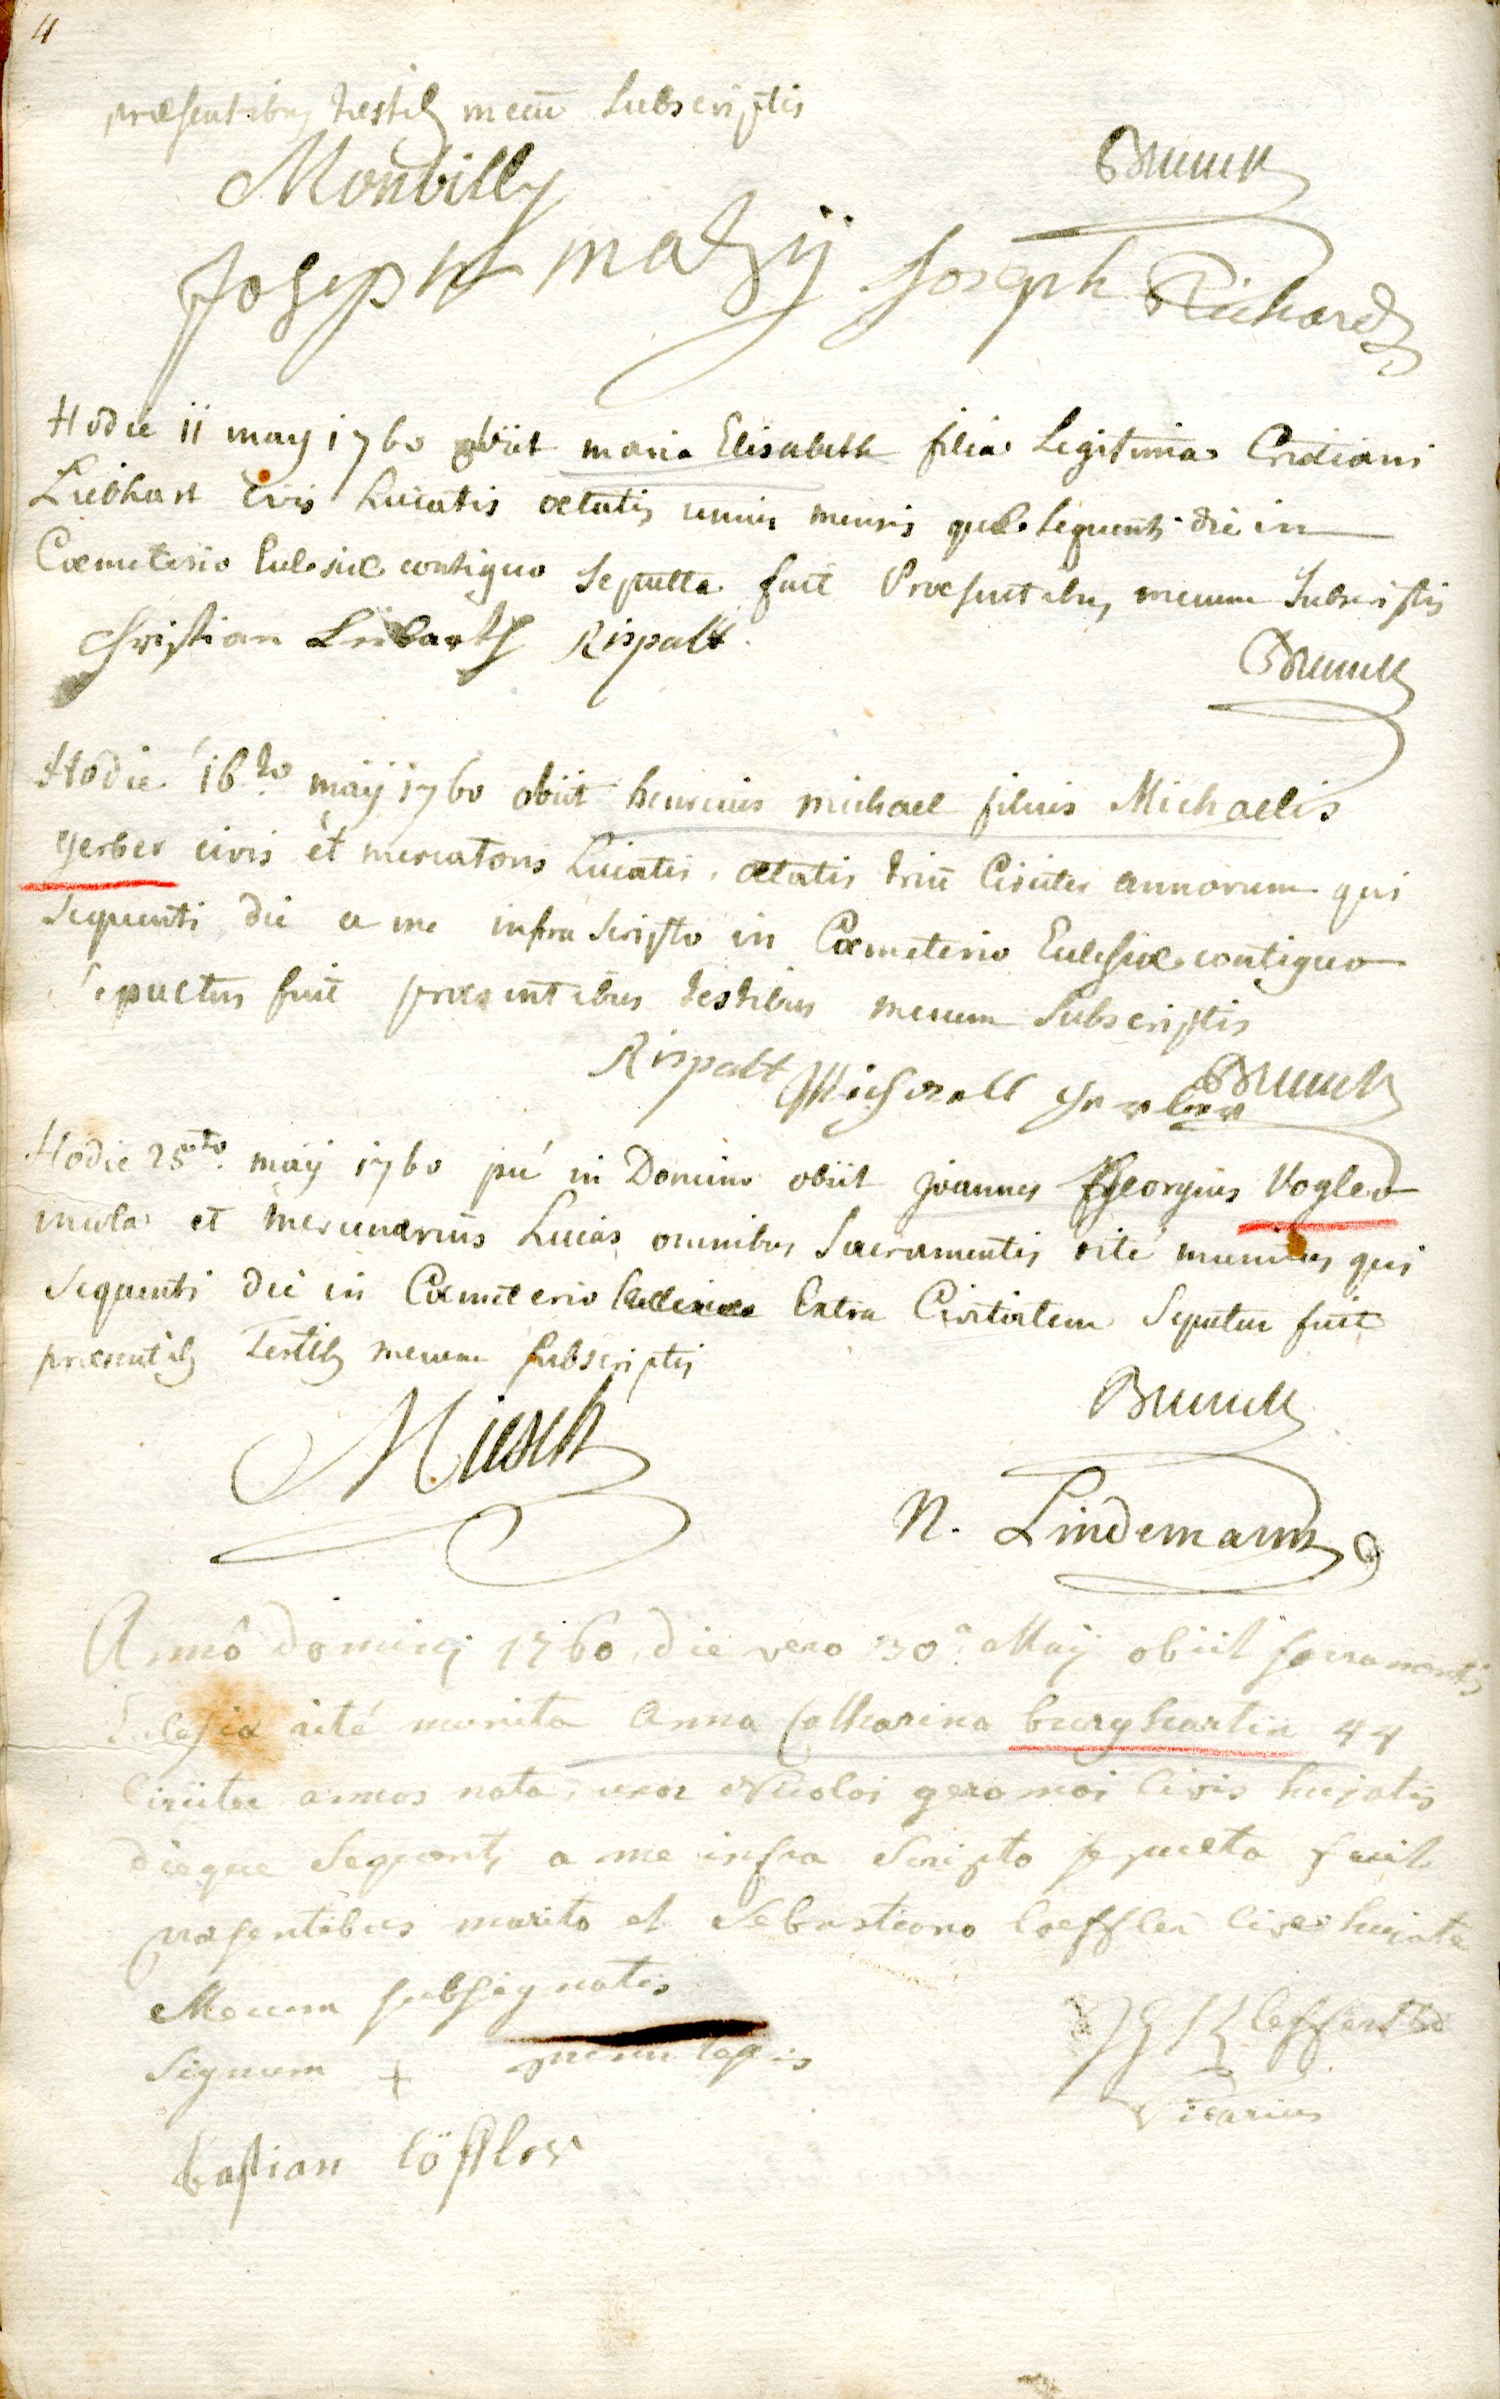 4
præsentibus testib mecū subscriptis
Monbilly
Brunck
Joseph matzij Joseph Richard
Hodie 11 may 1760 obiit maria Elisabeth filia Legitima Cristiani
Liebhart civis huiatis ætatis unius mensis quæ sequenti die in
Cœmeterio Eclesiæ contiguo sepulta fuit Præsentibus mecum subscriptis
Christian Rispalt
Brunck
Hodie 16to maij 1760 obiit henricus michael filius Michaelis
gerber civis et mercatoris huiatis, ætatis triū Circiter annorum qui
sequenti die a me infra scripto in Cœmeterio Eclesiæ contiguo
sepultus fuit præsentibus testibus mecum subscriptis
Rispalt Michaell gerber Brunck
Hodie 25to maij 1760 pié in Domino obiit joannes georgius Vogler
incola et mercenarius huias omnibus Sacramentis rité munitus qui
sequenti die in Cœmeterio Extra Civitatem Sepultus fuit
præsentib Testib mecum subscriptis
Brunck
Miesch
N. Lindemann
Annô dominij 1760, die vero 30a Maij obiit sacramentis
Eclesiæ rité munita anna Catharina burghartin 44
Circiter annos nata, uxor Nicolai civis hujatis
dieque sequenti a me infra scripto sepulta fuit
præsentibus marito et Sebastiano loeffler cive hujate
Mecum subsignatis
Signum +
vicarius
bastian löffler